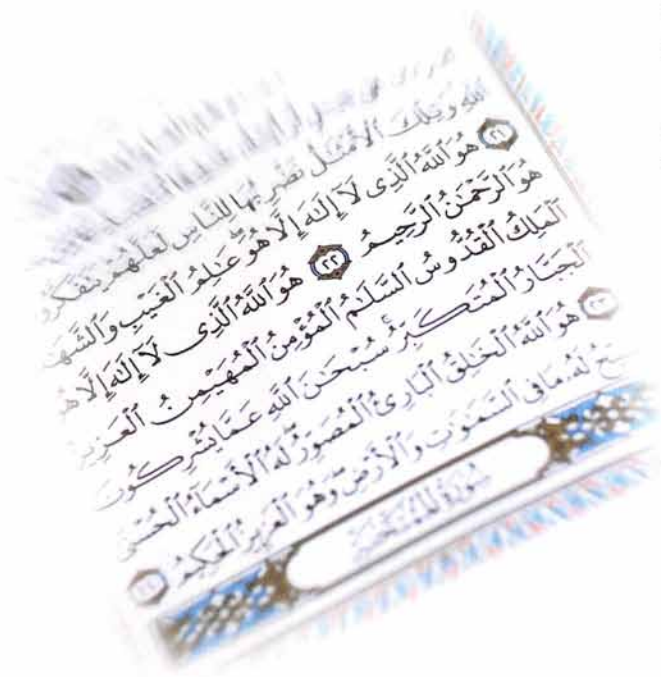 ٱللَّهِ وَتِلْكَ ٱلْأَمْثَـٰلُ نَضْرِبُهَا لِلنَّاسِ لَعَلَّهُمْ يَتَفَكَّرُو
٢١ هُوَ ٱللَّهُ ٱلَّذِى لَآ إِلَـٰهَ إِلَّا هُوَ ۖ عَـٰلِمُ ٱلْغَيْبِ وَٱلشَّهَـ
هُوَ ٱلرَّحْمَـٰنُ ٱلرَّحِيمُ ٢٢ هُوَ ٱللَّهُ ٱلَّذِى لَآ إِلَـٰهَ إِلَّا هُ
ٱلْمَلِكُ ٱلْقُدُّوسُ ٱلسَّلَـٰمُ ٱلْمُؤْمِنُ ٱلْمُهَيْمِنُ ٱلْعَزِيزُ
ٱلْجَبَّارُ ٱلْمُتَكَبِّرُ ۚ سُبْحَـٰنَ ٱللَّهِ عَمَّا يُشْرِكُونَ
٢٣ هُوَ ٱللَّهُ ٱلْخَـٰلِقُ ٱلْبَارِئُ ٱلْمُصَوِّرُ ۖ لَهُ ٱلْأَسْمَآءُ ٱلْحُسْنَ
بِّحُ لَهُۥ مَا فِى ٱلسَّمَـٰوَٰتِ وَٱلْأَرْضِ ۖ وَهُوَ ٱلْعَزِيزُ ٱلْحَكِيمُ ٢٤
سُورَةُ ٱلْمُمْتَحَنَةِ